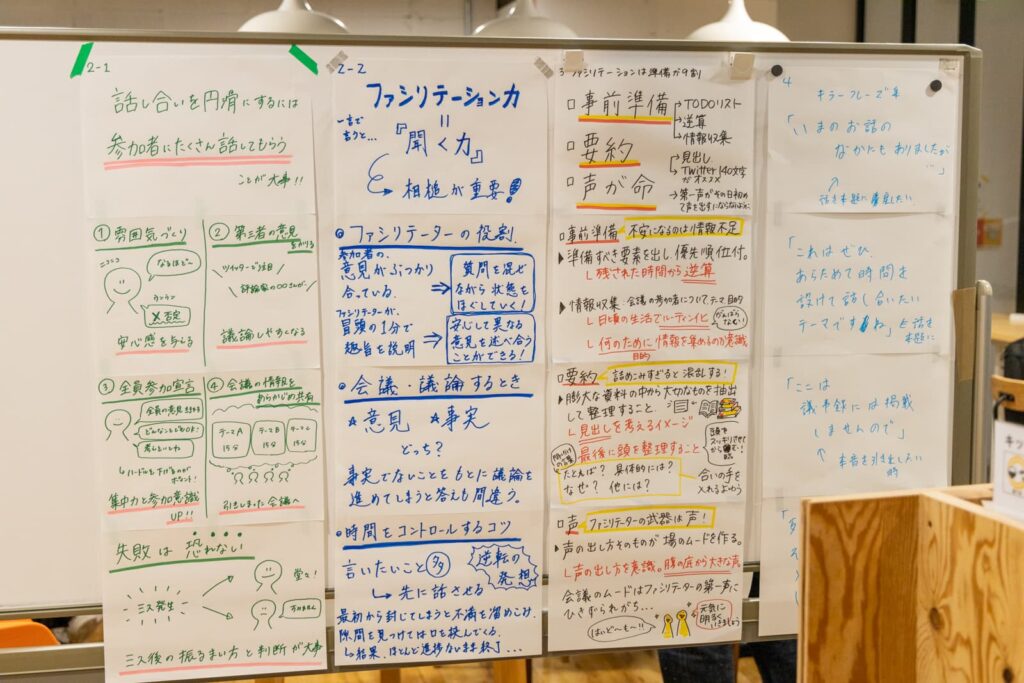 2-1
話し合いを円滑にするには
参加者にたくさん話してもらう
ことが大事!!
① 雰囲気づくり
ニコニコ
なるほど〜
ウンウン
×否定
安心感を与える
② 第三者の意見
をかりる
ツイッターで注目
評論家の〇〇さんが、
議論しやすくなる
③ 全員参加宣言
全員の意見を求める
どんなことでもOK!
考えといてね
ハードルを下げるのが
ポイント!
集中力と参加意識
UP!!
④ 会議の情報を
あらかじめ共有
テーマA
15分
テーマB
15分
テーマC
15分
引きしまった会議へ
失敗は恐れない
ミス発生
堂々!
ミス後の振るまい方と判断が大事
2-2
ファシリテーション力
一言で
言うと...
=
『聞く力』
相槌が重要!
ファシリテーターの役割。
参加者の、
意見がぶつかり
合っている。
⇒
質問を混ぜ
ながら状態を
ほぐしていく!
ファシリテーターが、
冒頭の1分で
趣旨を説明
⇒
安心して異なる
意見を述べ合う
ことができる!
会議・議論するとき
★意見 ★事実
どっち?
事実でないことをもとに議論を
進めてしまうと答えも間違う。
時間をコントロールするコツ
言いたいこと多
先に話させる
逆転の
発想
最初から封じてしまうと不満を溜めこみ
隙間を見つけては口を挟んでくる。
結果、ほとんど進捗ないまま終了...
3 ファシリテーションは準備が9割
□事前準備
→TODOリスト
→逆算
→情報収集
□要約
→見出し
→Twitter 140文字
がオススメ
□声が命
→第一声がその日初め
て声を出すにならないように
□事前準備 不安になるのは情報不足
▶準備すべき要素を出し、優先順位付。
残された時間から逆算
▶情報収集:会議の参加者について テーマ 目的
日頃の生活でルーティン化
がんばら
なむ!
何のために情報を集めるのか意識
目的
□要約 詰めこみすぎると混乱する!
▶膨大な資料の中から大切なものを抽出
して整理すること。
見出しを考えるイメージ
最後に頭を整理すること
たとえば? 具体的には?
なぜ? 他には?
合いの手を
入れるように
□声 ファシリテーターの武器は声!
▶声の出し方そのものが場のムードを作る。
声の出し方を意識。腹の底から大きな声
会議のムードはファシリテーターの第一声に
ひきずられがち...
はいど〜も〜!!
元気に
明るく
いきましょう
4
キラーフレーズ集
「いまのお話の
なかにもありましたが
…」
話を本題に
「これはぜひ、
あらためて時間を
設けて話し合いたい
テーマですね」と話を
本題に
「ここは
議事録には掲載
しませんので」
本音を引き出したい
時